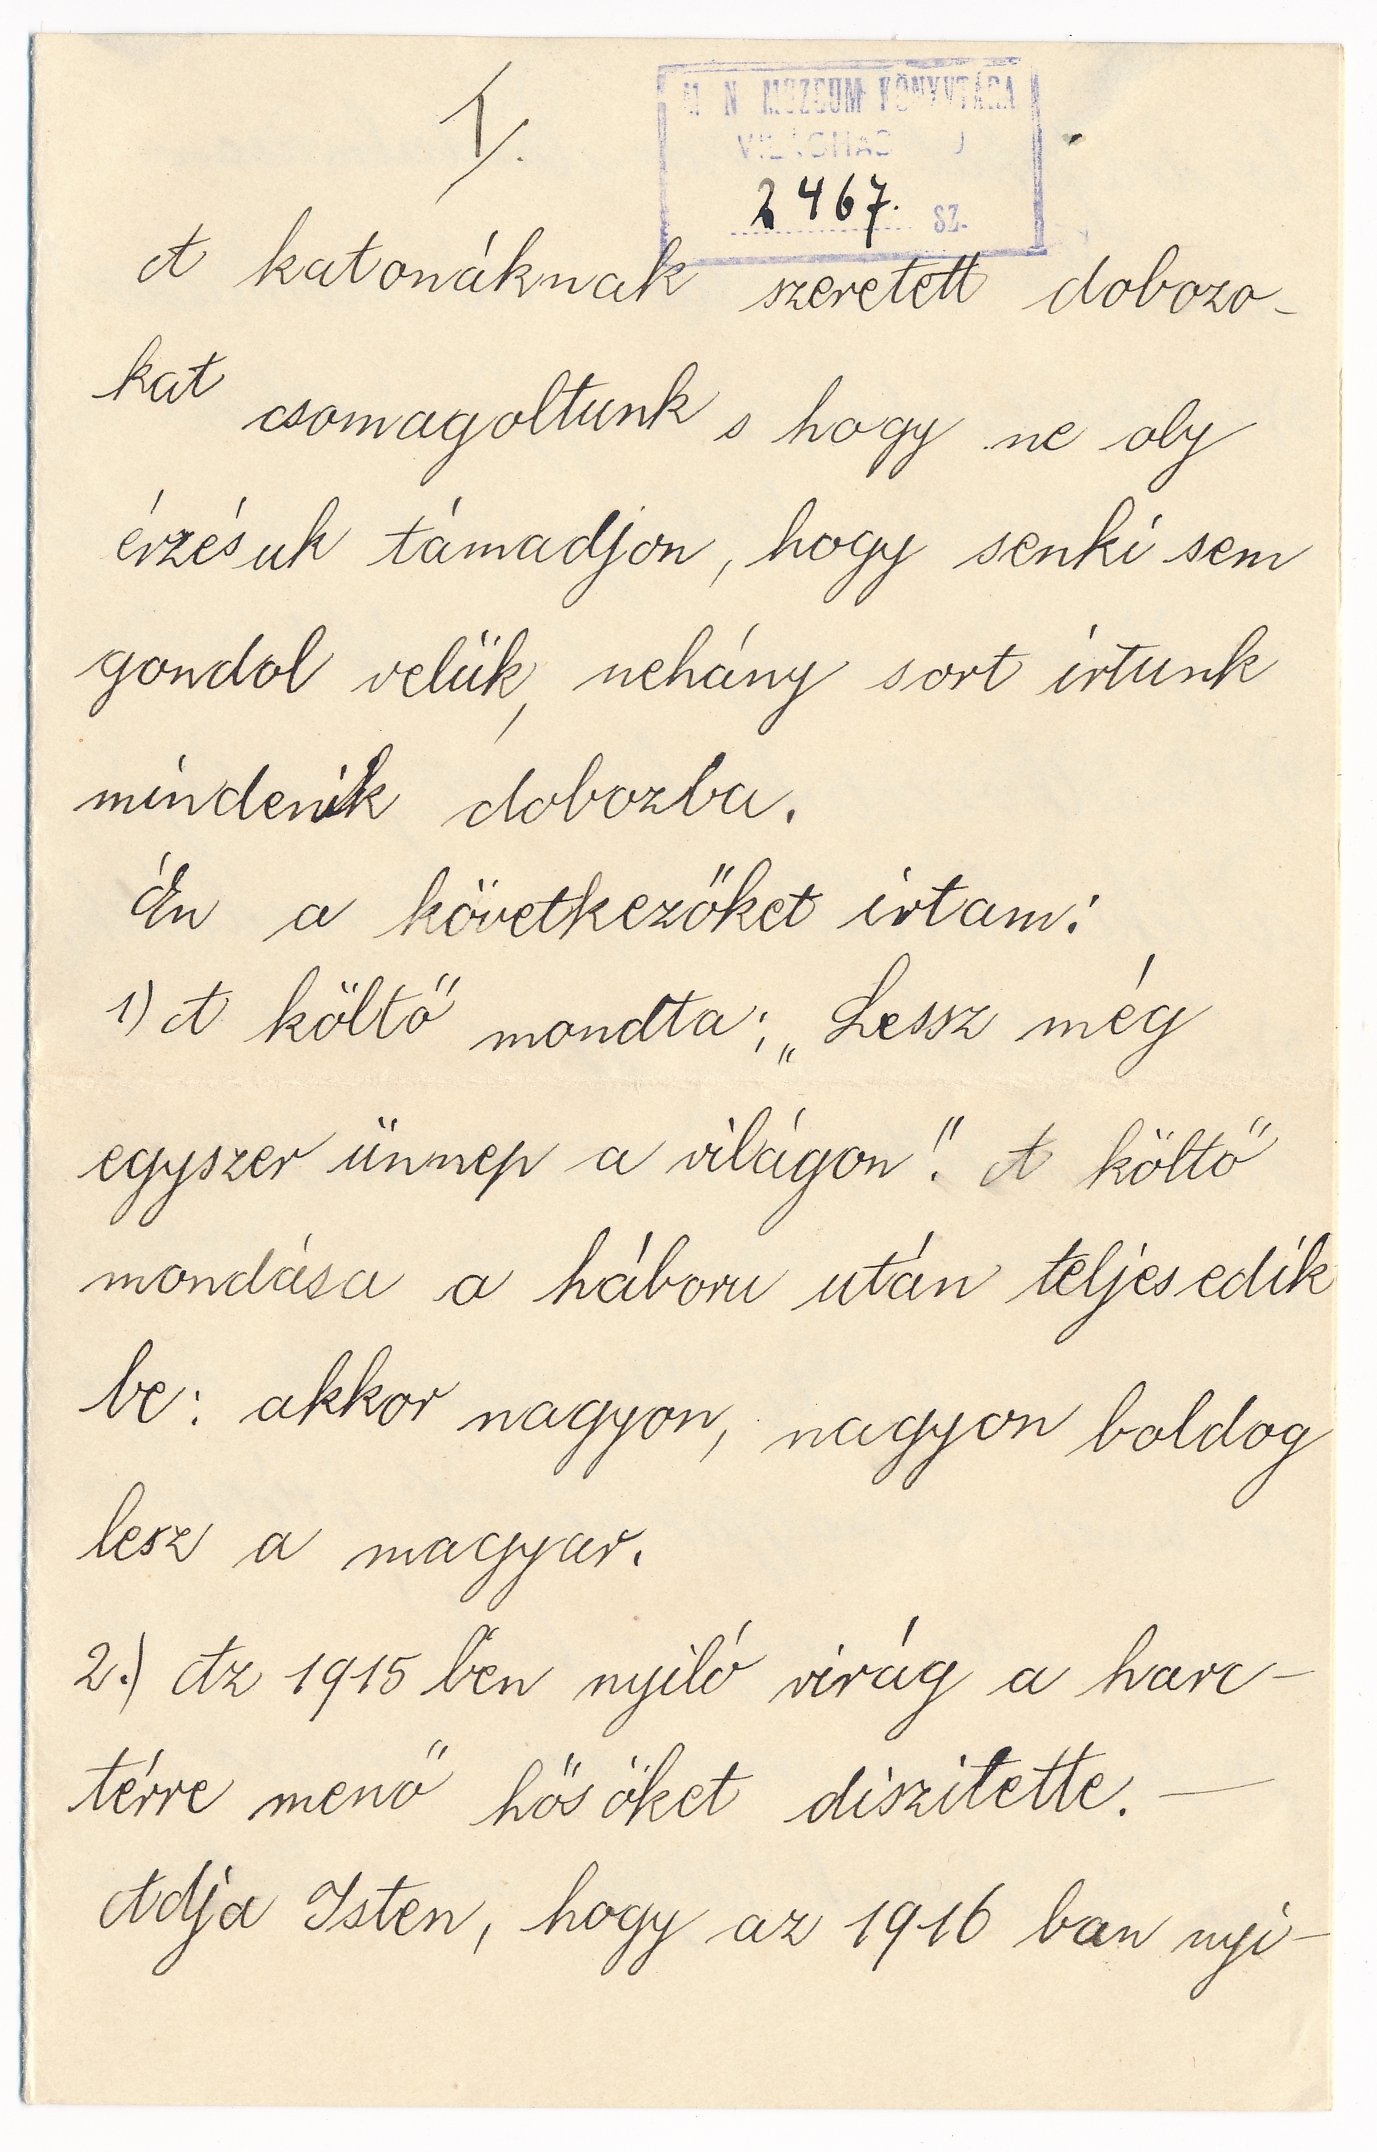 1/.
M N MUZEUM KÖNYVTÁRA
2467. SZ.
A katonáknak szeretett dobozo-
kat csomagoltunk s hogy ne oly
érzésuk támadjon, hogy senki sem
gondol velük, nehány sort irtunk
mindenik dobozba.
Én a következőket irtam:
1) A költő mondta: „Lessz még
egyszer ünnep a világon!" A költő
mondása a háboru után teljesedik
be: akkor nagyon, nagyon boldog
lesz a magyar.
2.) Az 1915 ben nyiló virág a harc-
térre menő hősöket diszitette. —
Adja Isten, hogy az 1916 ban nyi-